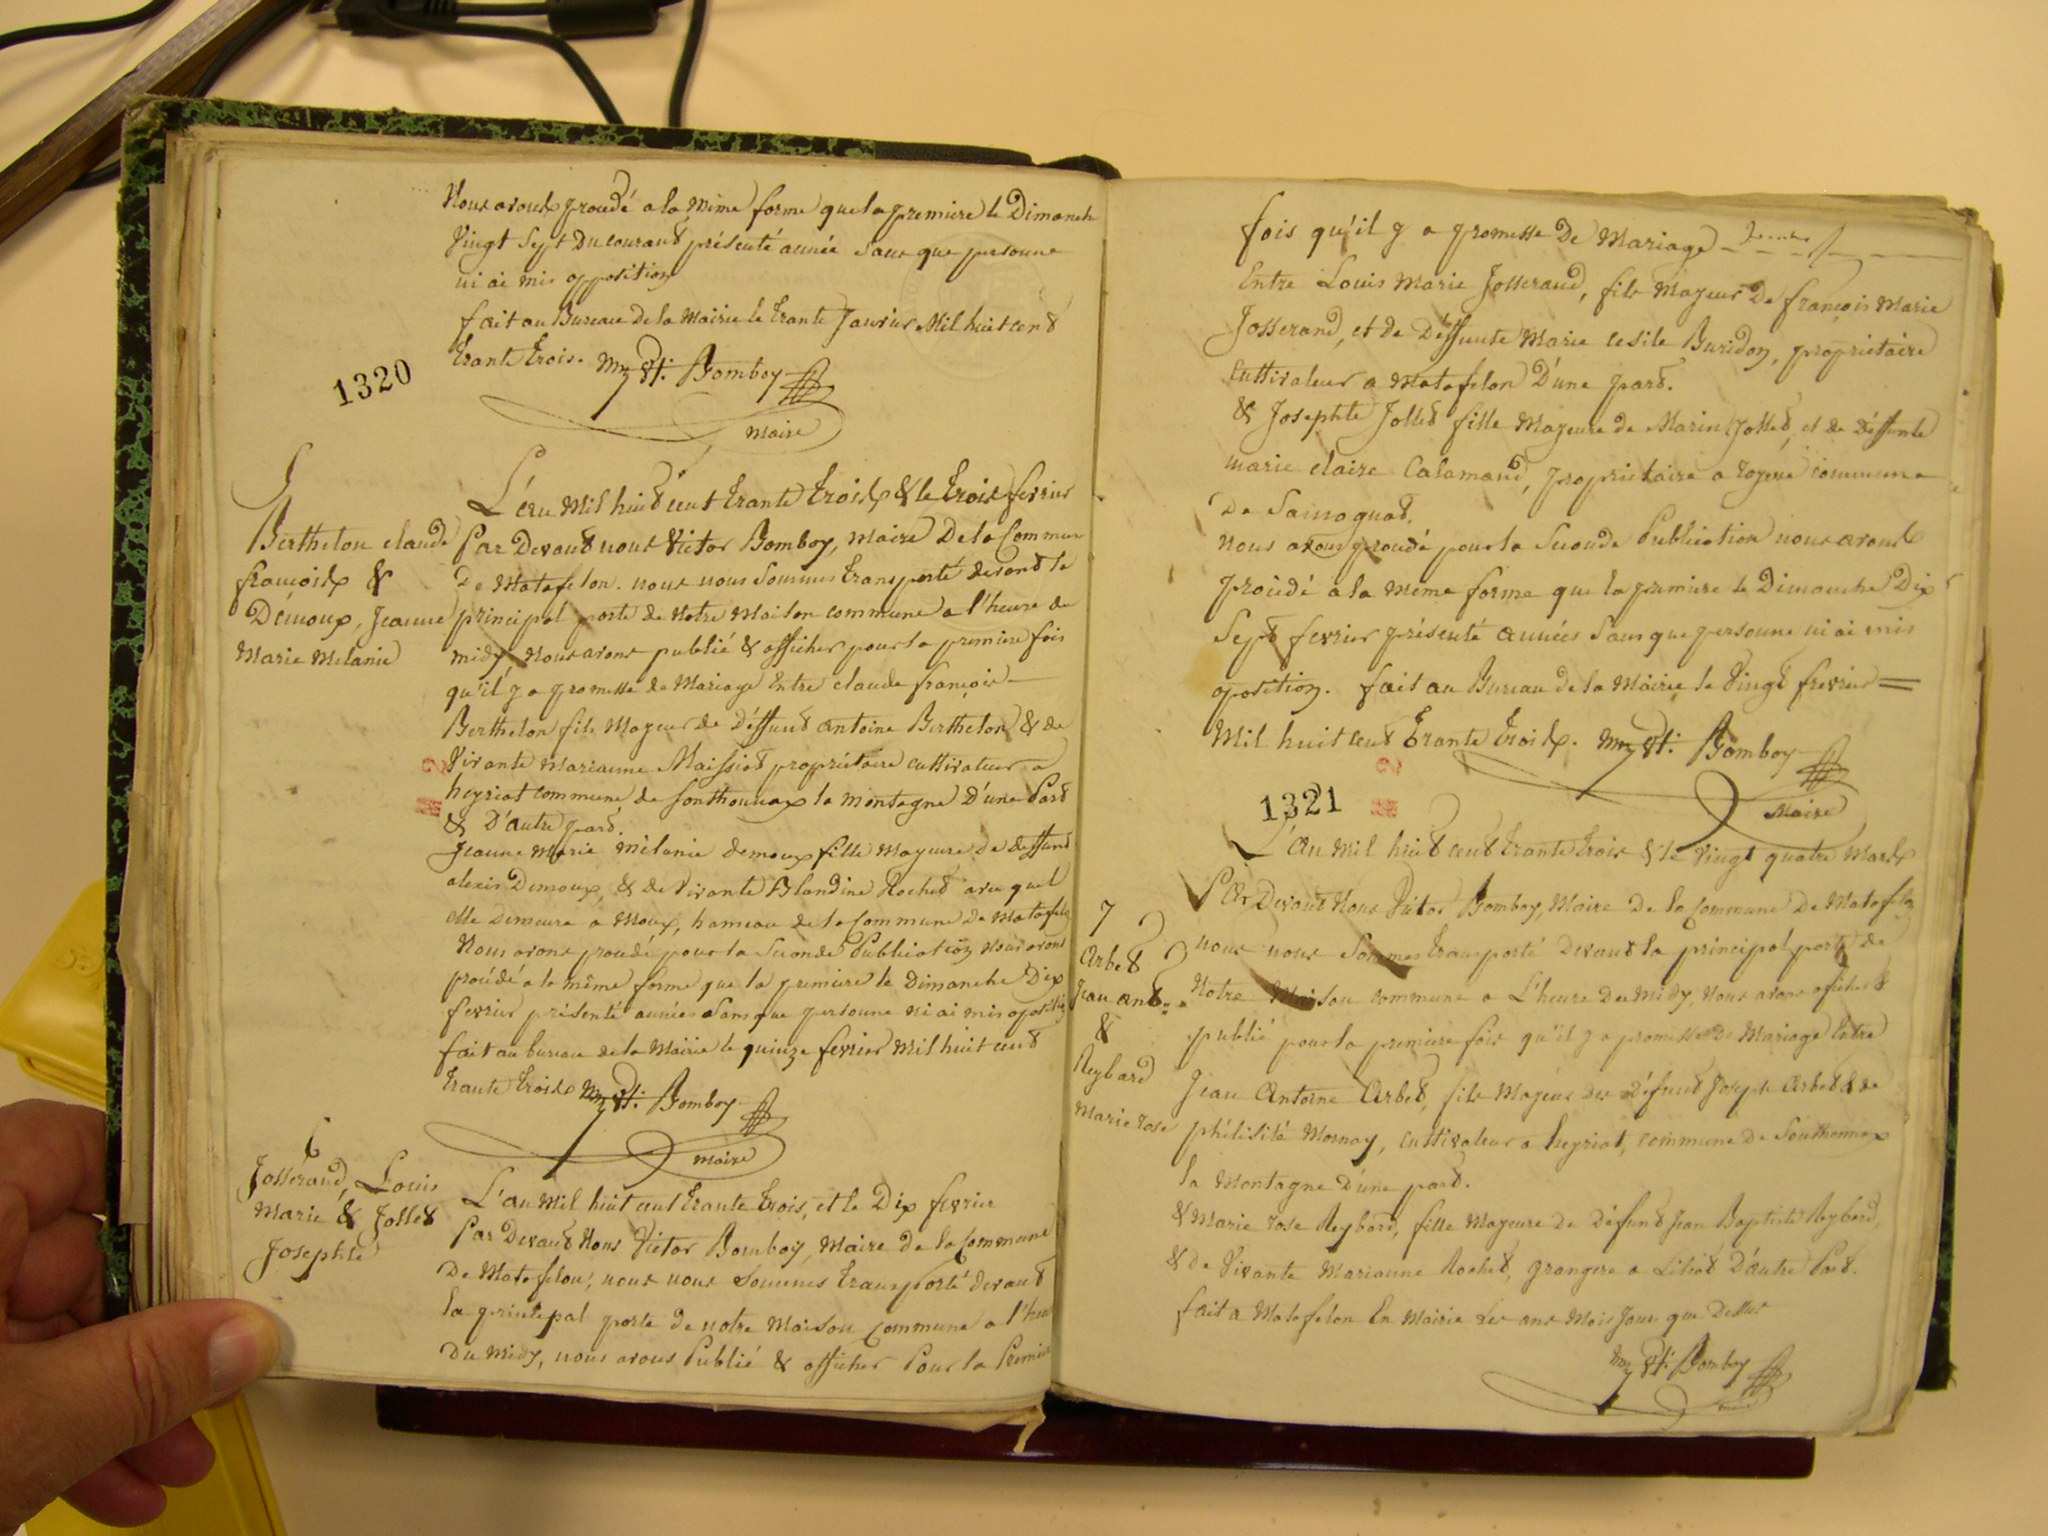 Nous avons proudé a la même forme que la premiere le Dimanche
Vingt Sept Du courant présenté année sans que personne
ni ai mis opposition
fait au Bureau de la Mairie le trante Janvier Mil huit cent
trante trois. Bomboy
maire
1320
5
Berthelon claude
françois &
Démoux, Jeanne
Marie Melanie
L'an Mil huit cent trante trois & le trois fevrier
Par Devant nous Victor Bomboy, Maire De la Commune
De Matafelon. nous nous Sommes transporté devant la
principal porte de Notre Maison commune a l'heure de
midy, Nous avons publié & afficher pour la premiere fois
qu'il y a promesse de Mariage Entre claude françois
Berthelon fils Majeur de Déffunt antoine Berthelon & de
Vivante Marianne Maissiat propriétaire cultivateur a
heyriat commune de Sonthonnax la montagne D'une Part
& D'autre part.
Jeanne Marie mélanie demoux fille Mayeure de deffunt
alexis Demoux, & de Vivante Blandine Rochet avec quel
elle Demeure a Moux, hameau de la Commune de Matafelon
Nous avons proudé pour la Seconde Publication Nous avons
proudé a la même forme que la premiere le Dimanche Dix
fevrier présenté année Sans que personne ni ai mis opositi
fait au bureau de la Mairie le quinze fevrier Mil huit cent
trante trois Bomboy
maire
6
Josserand, Louis
Marie & Jollet
Josephte
L'an Mil huit cent trante trois, et le Dix fevrier
Par Devant Nous Victor Bomboy, Maire de la Commune
De Matafelon, nous nous Sommes transporté devant
la principal porte de notre Maison Commune a l'heu
Du Midy, nous avons Publié & afficher Pour la Premiere
fois qu'il y a promesse De Mariage
Entre Louis Marie Josserand, fils Mayeur De françois Marie
Josserand, et de Déffunte Marie cesile Buridon, propriétaire
Cultivateur a Matafelon D'une part.
& Josephte Jollet fille Mayeure de Marin Jollet, et de Déffunte
marie claire Calamand, propriétaire a commune
De Samognat.
nous avons proudé pour la Seconde Publication nous avons
proudé a la même forme que la premiere le Dimanche Dix
Sept fevrier présenté années Sans que personne ni ai mis
oposition. fait au Bureau de la Mairie le Vingt fevrier =
Mil huit cent trante trois. Bomboy
Maire
1321
L'an mil huit cent trante trois & le Vingt quatre Mars
Par Devant Nous Victor Bomboy, Maire De la Commune De Matafelon
nous nous Sommes transporté Devant la principal porte de
Notre Maison commune a L'heure De Midy, Nous avons afficher &
publié pour la premiere fois qu'il y a promesse De Mariage Entre
7
Arbet
Jean ant
&
Reybard
Marie rose
Jean Antoine Arbet, fils Majeur de Défunt Joseph Arbet & de
phélisité Mornay, cultivateur a heyriat, commune de Sonthonnax
la Montagne D'une part.
& Marie rose Reybard, fille Mayeure de Défunt Jean Baptiste Reybard,
& de Vivante Marianne Rochet, grangere a D'autre Part.
fait a Matafelon En Mairie Les ans Mois Jour que Dessus
Bomboy